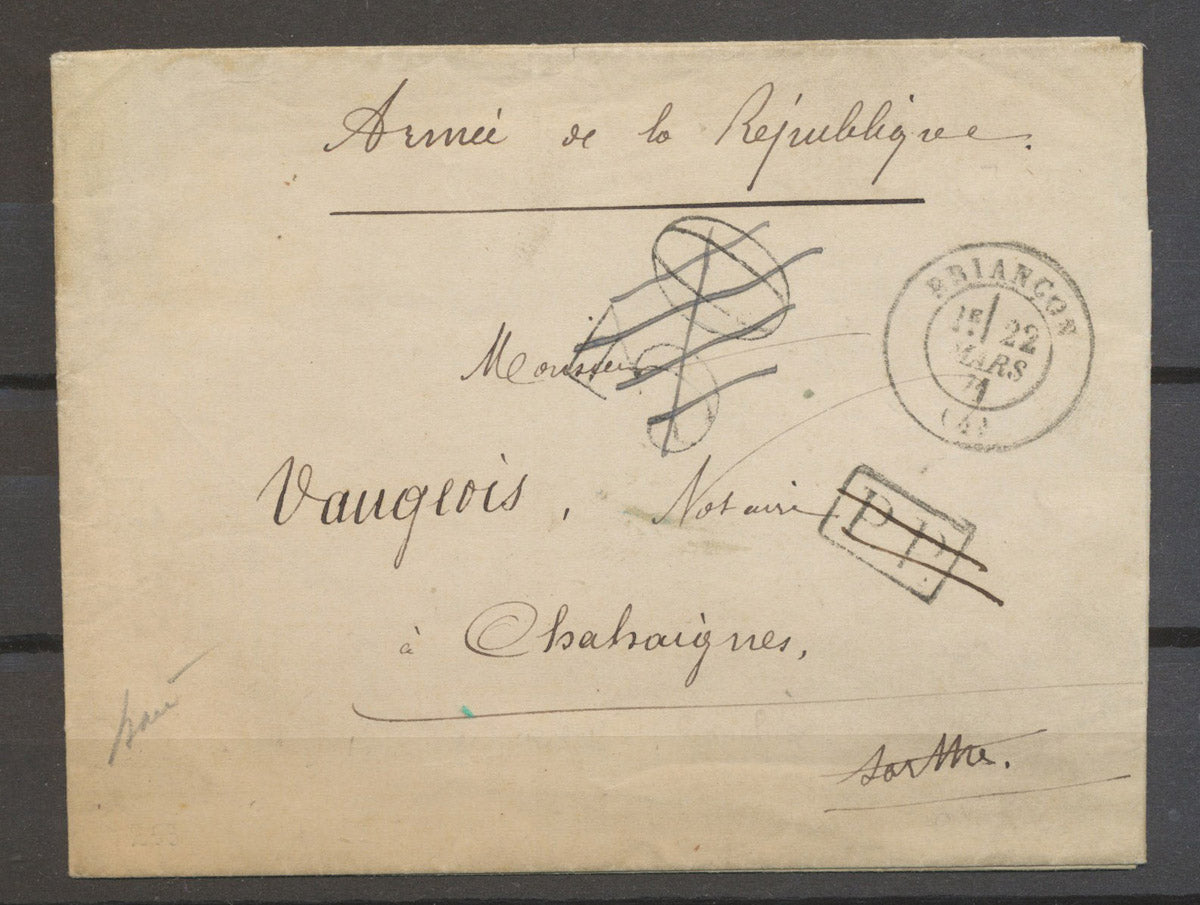 Armée de la République.
BRIANÇON
1E/ 22
MARS
71
(4)
Monsieur
Vaugeois, Notaire
P.P.
à Chahaignes,
Sarthe.
253